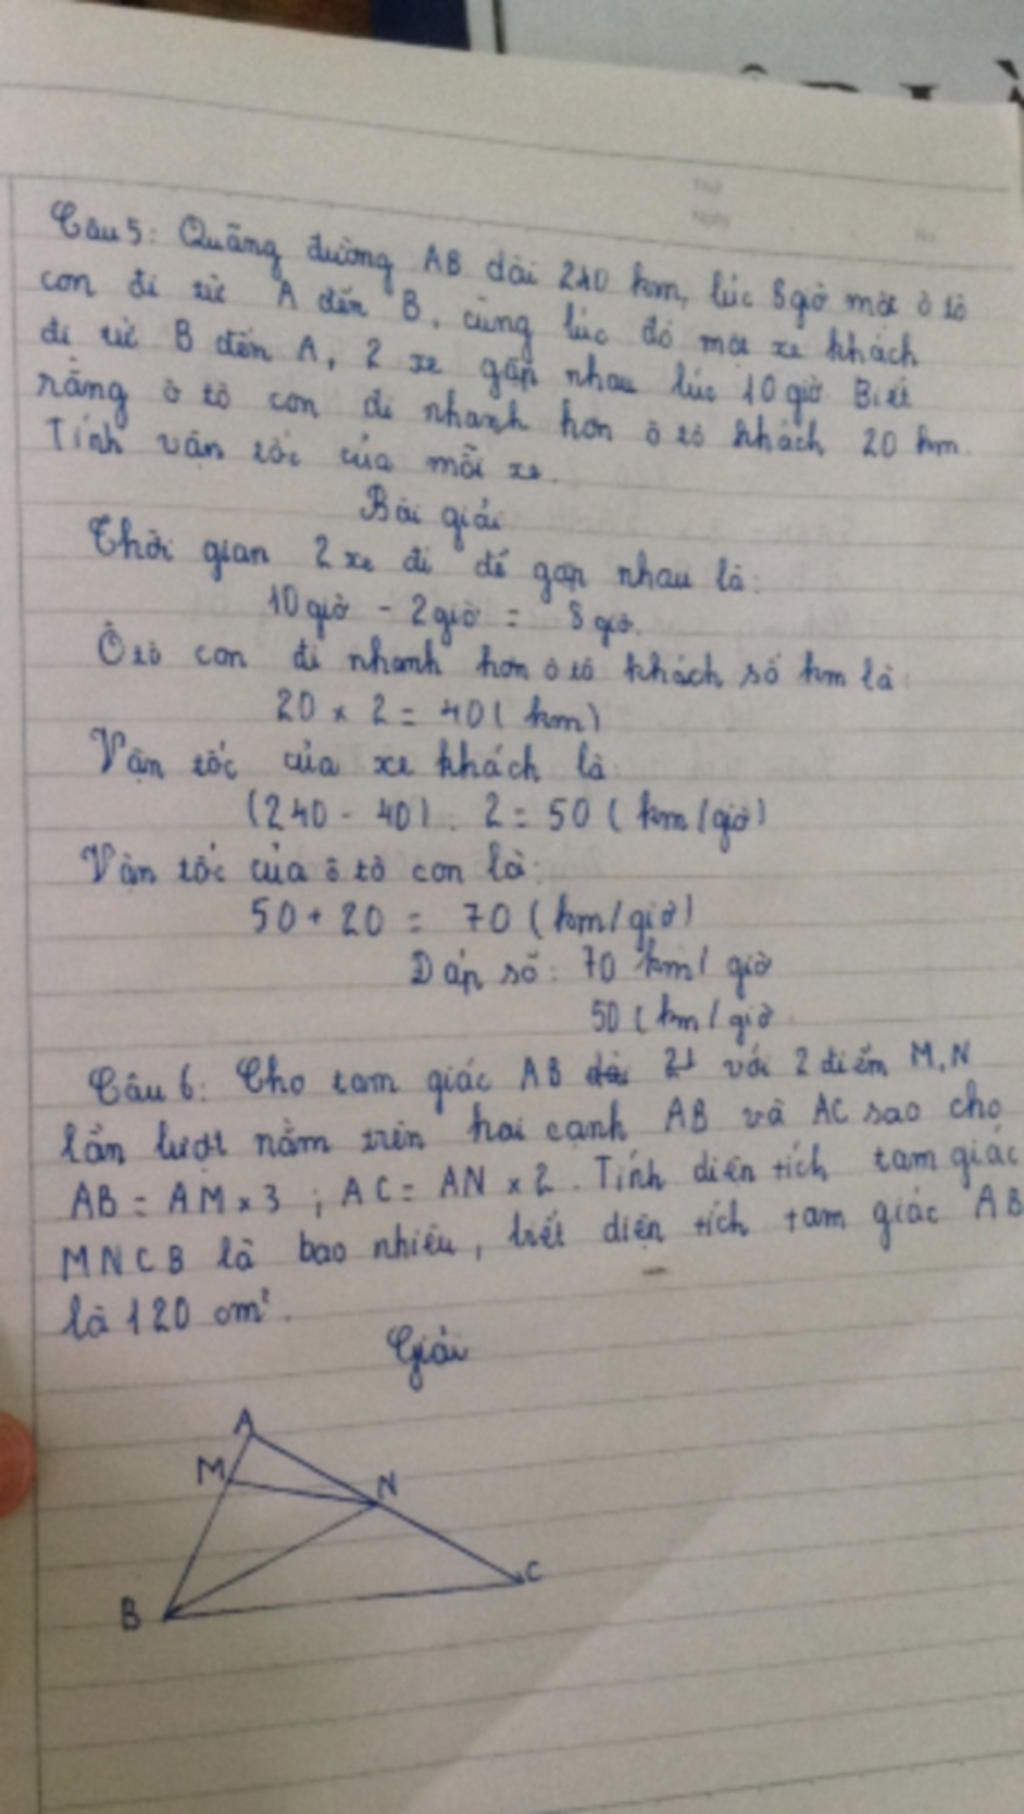 Câu 5: Quãng đường AB dài 240 km, lúc 8 giờ một ô tô
con đi từ A đến B, cùng lúc đó một xe khách
đi từ B đến A, 2 xe gặp nhau lúc 10 giờ Biết
rằng ô tô con đi nhanh hơn ô tô khách 20 km.
Tính vận tốc của mỗi xe.
Bài giải
Thời gian 2 xe đi để gặp nhau là:
10 giờ - 2 giờ = 8 giờ.
Ô tô con đi nhanh hơn ô tô khách số km là:
20 x 2 = 40 ( km)
Vận tốc của xe khách là
(240 - 40) : 2 = 50 ( km/giờ)
Vận tốc của ô tô con là:
50 + 20 = 70 ( km/giờ)
Đáp số: 70 km/ giờ
50 ( km/giờ
Câu 6: Cho tam giác AB với 2 điểm M, N
lần lượt nằm trên hai cạnh AB và AC sao cho
AB = AM x 3 ; AC = AN x 2. Tính diện tích tam giác
MNCB là bao nhiêu, biết diện tích tam giác AB
là 120 cm².
Giải
A
M
N
C
B